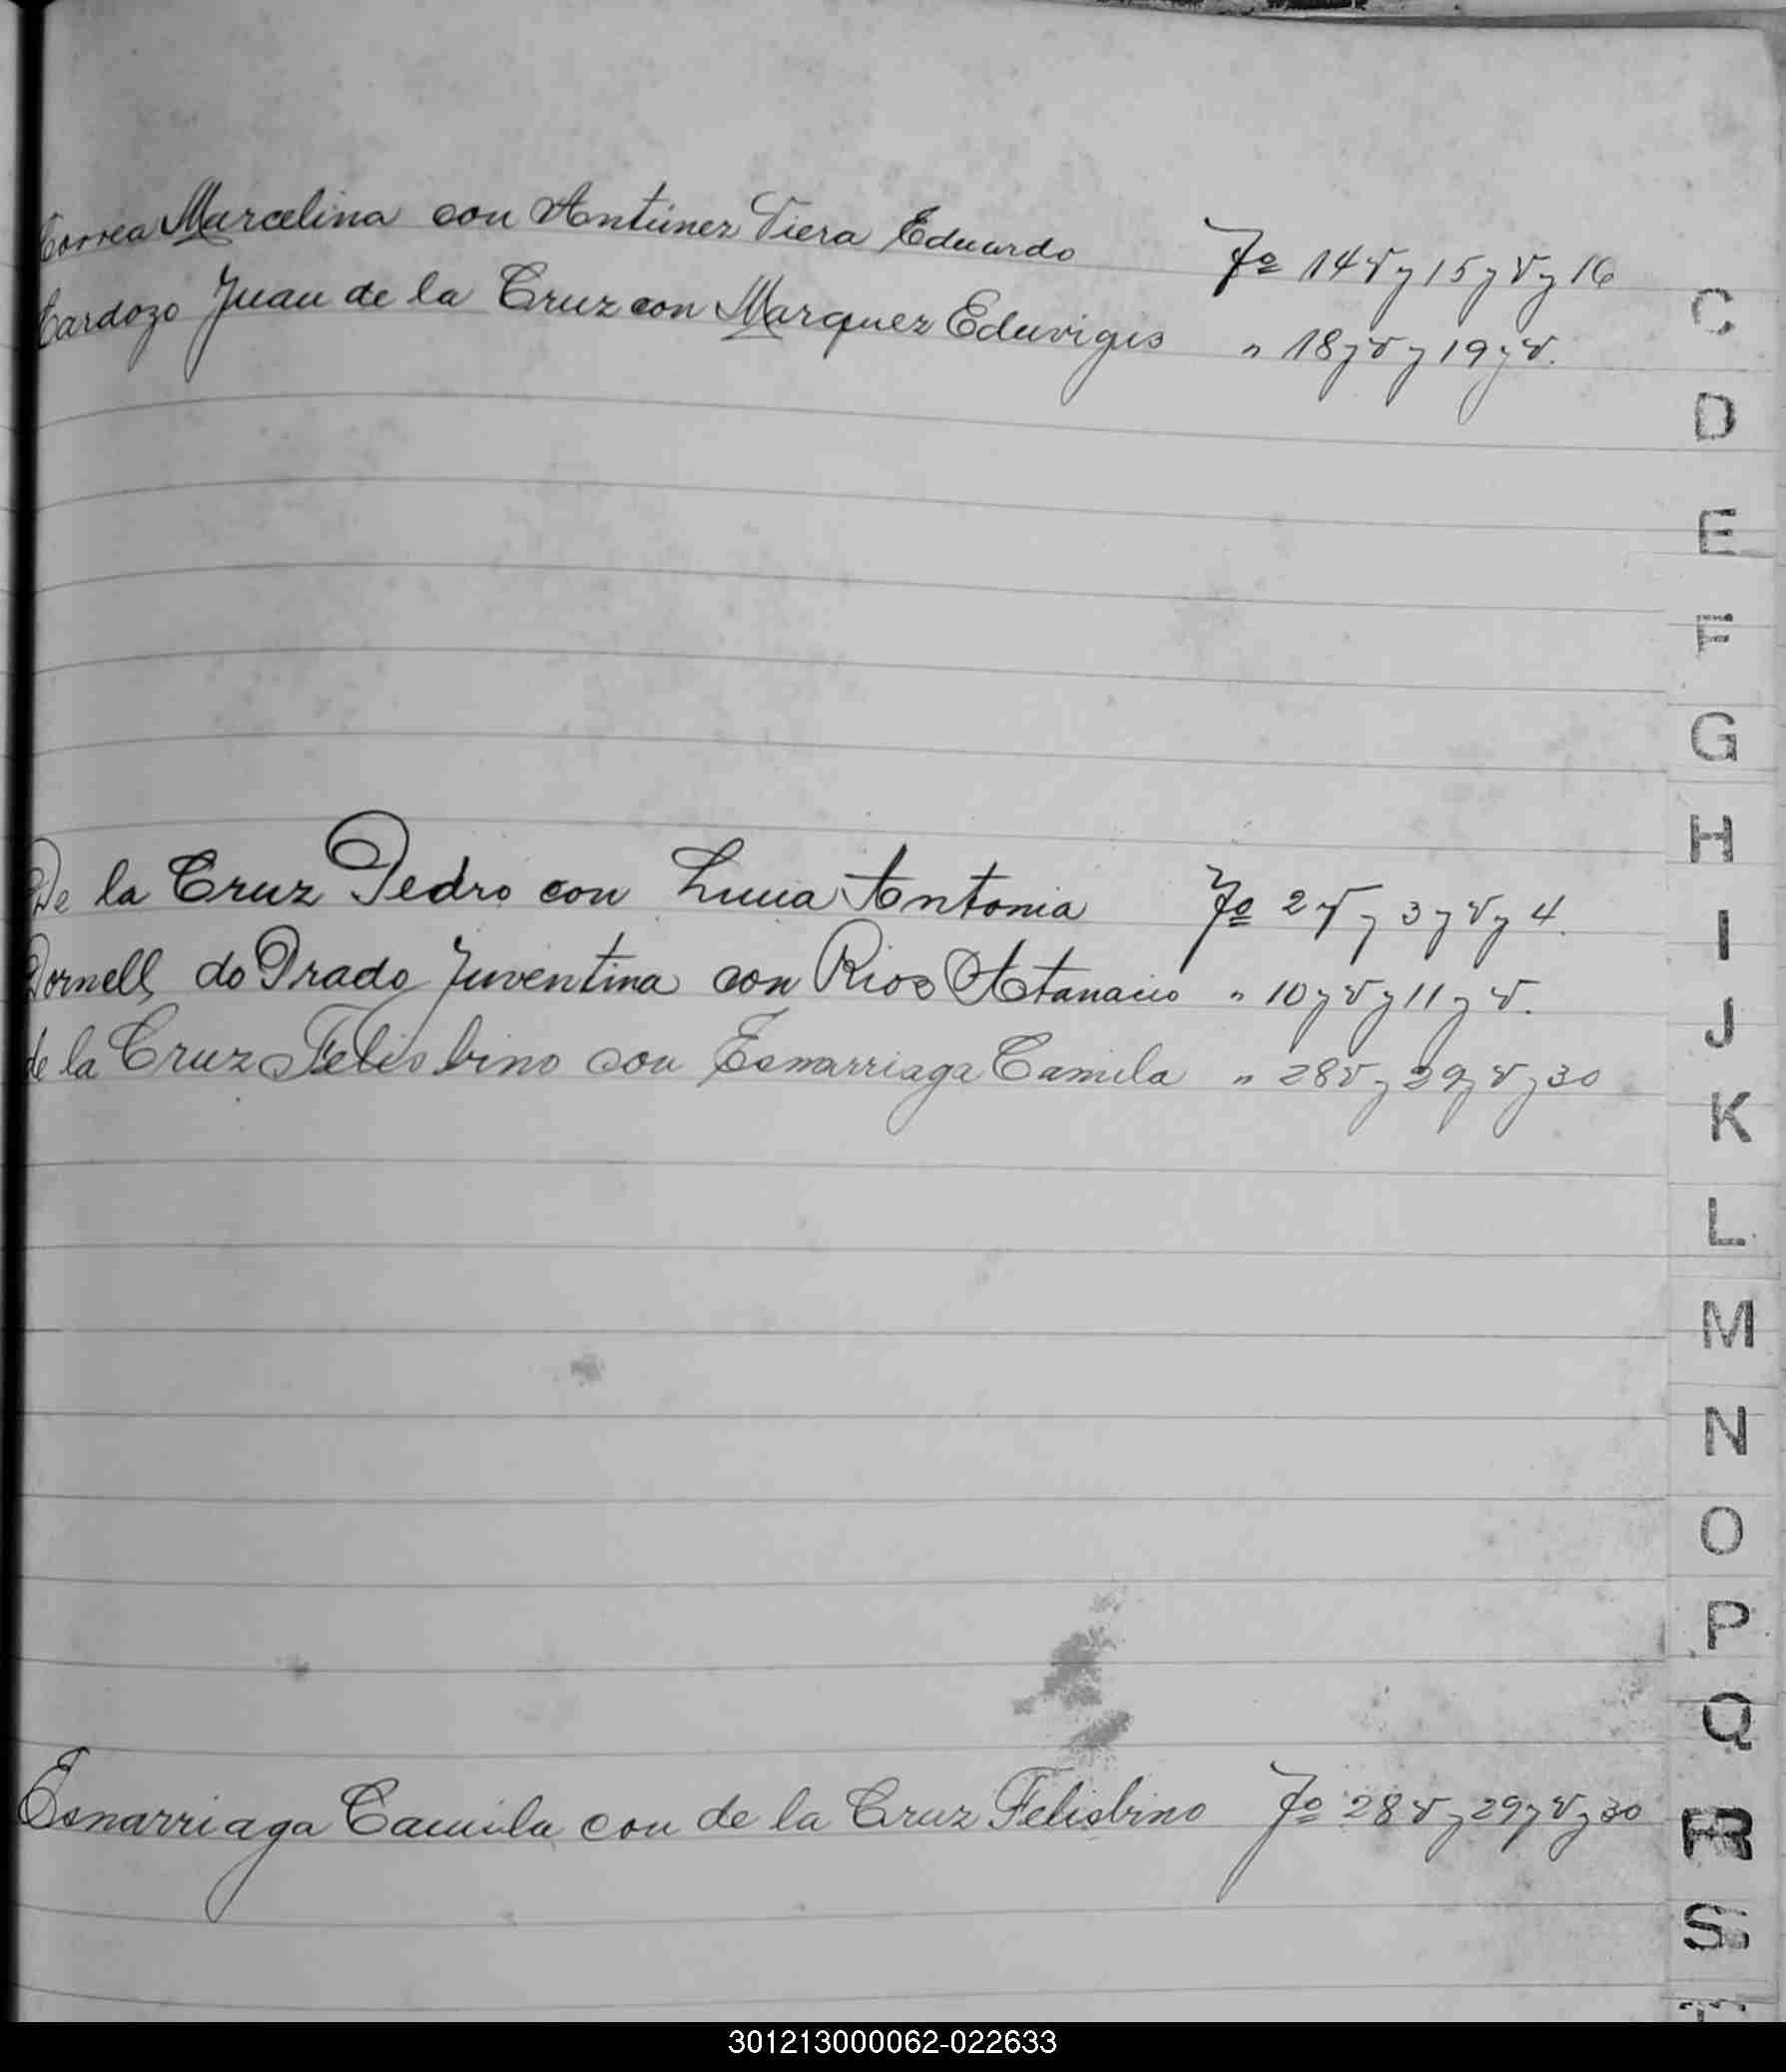 Correa Marcelina con Antúnez Viera Eduardo Fº 14 v y 15 y v y 16
Cardozo Juan de la Cruz con Marquez Eduvigis " 18 y v y 19 y v.
De la Cruz Pedro con Luna Antonia Fº 2 v y 3 y v y 4.
Dornell, do Prado Juventina con Rios Atanacio " 10 y v y 11 y v.
de la Cruz Felisbino con Esnarriaga Camila " 28 v y 29 y v y 30
Esnarriaga Camila con de la Cruz Felisbino Fº 28 v y 29 y v y 30
C
D
E
F
G
H
I
J
K
L
M
N
O
P
Q
R
S
T
301213000062-022633